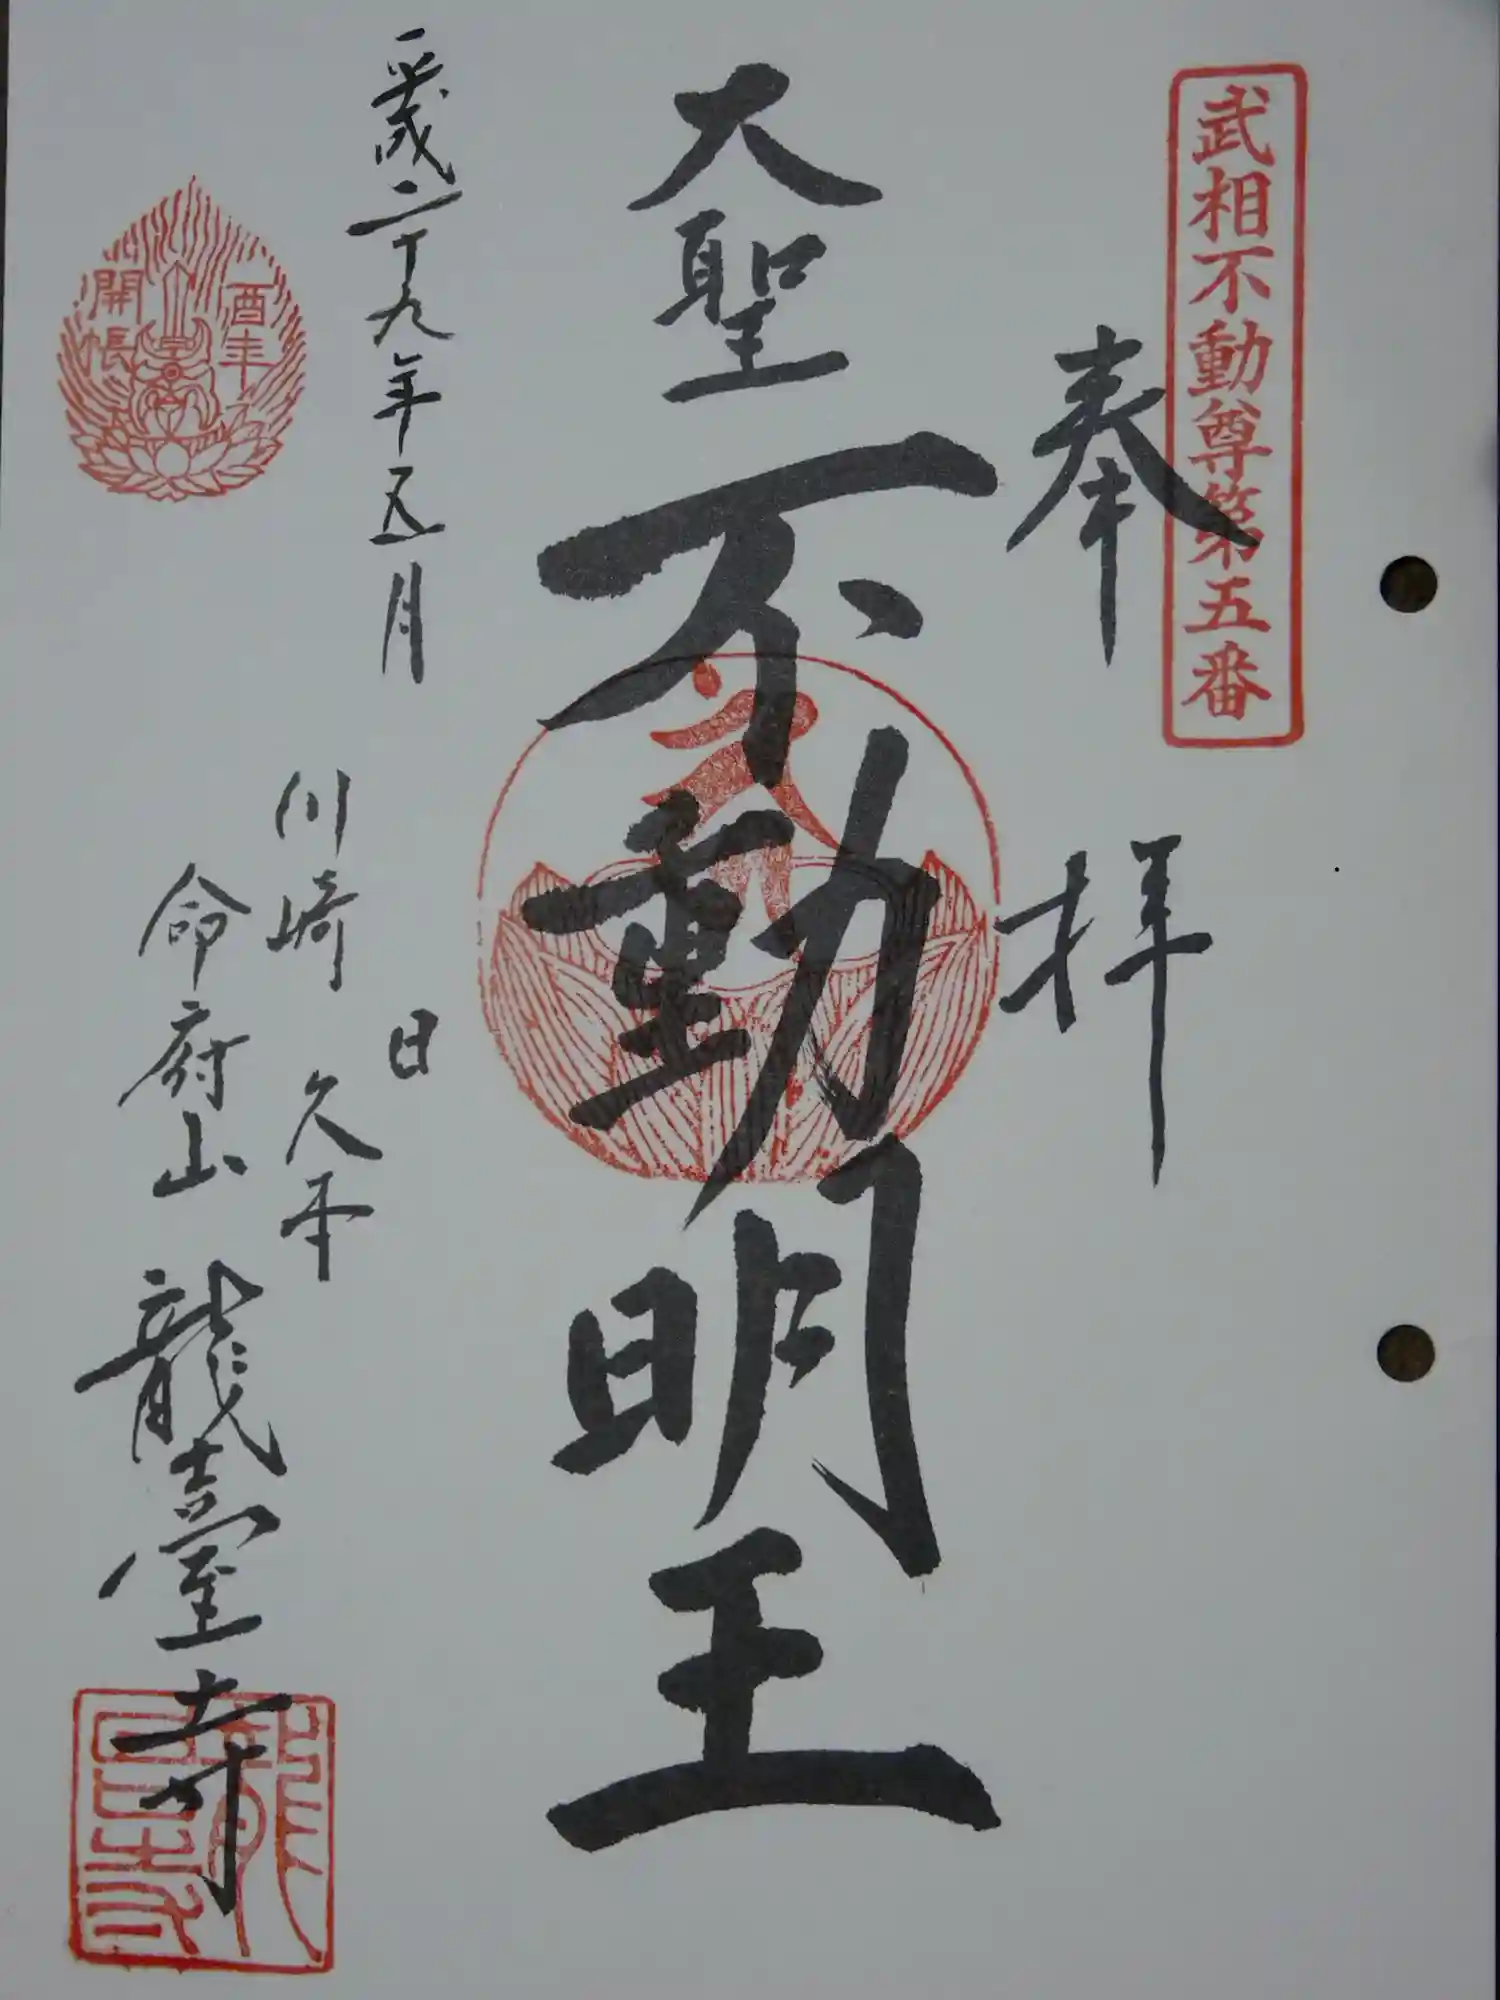 武相不動尊第五番
奉拝
大聖不動明王
平成二十九年五月 日
酉年
開帳
川崎 久本
命府山 龍臺寺